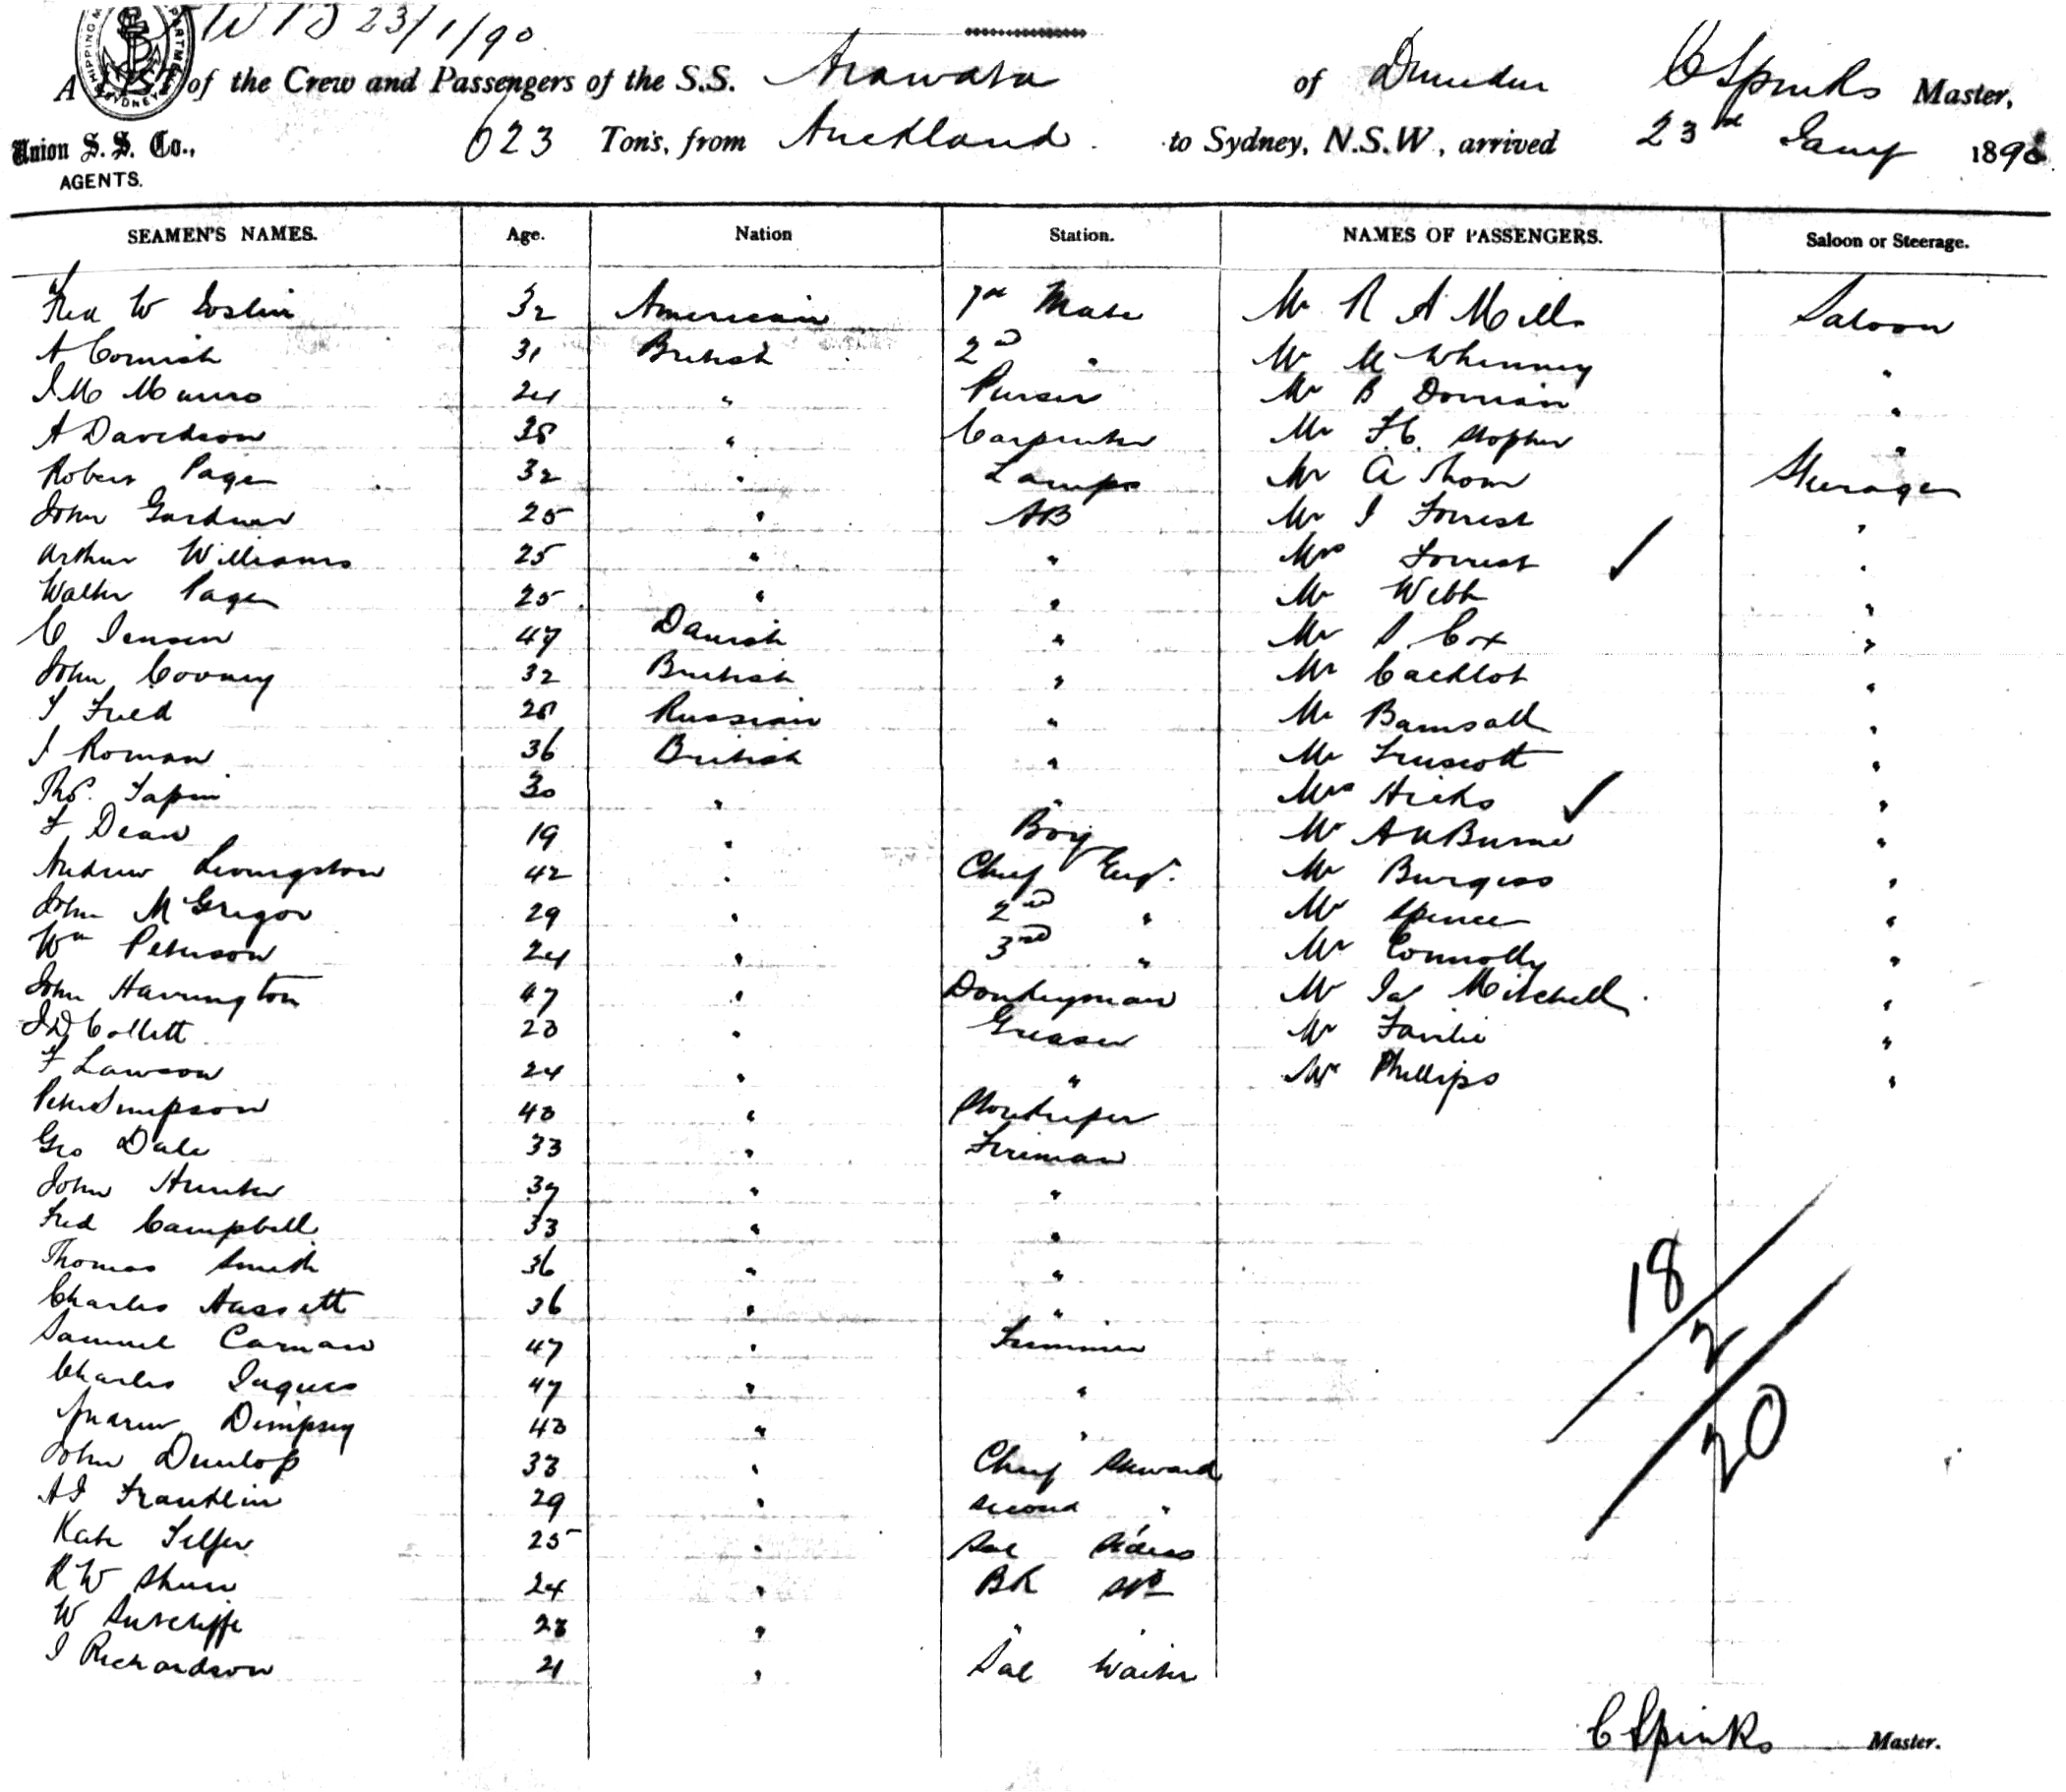 W T B 23/1/90
SHIPPING MASTER'S DEPARTMENT SYDNEY
A LIST of the Crew and Passengers of the S.S. Arawata of Dunedin C Spinks Master,
Union S. S. Co., AGENTS.
623 Ton's, from Auckland to Sydney, N.S.W., arrived 23rd Jany 1890
SEAMEN'S NAMES. Age. Nation Station. NAMES OF PASSENGERS. Saloon or Steerage.
Fred W 32 American 1st Mate Mr R A Mills Saloon
A Cornish 31 British 2nd " Mr McWhinney "
J M Munro 24 " Purser Mr B Dornan "
A Davidson 38 " Carpenter Mr F. C. Stopher "
Robert Page 32 " Lamps Mr A Thom Steerage
John Gardner 25 " AB Mr J Forrest "
Arthur Williams 25 " " Mrs Forrest ✓ "
Walter Page 25 " " Mr Webb "
C Jensen 47 Danish " Mr S Cox "
John Cooney 32 British " Mr "
T Freed 28 Russian " Mr "
J Roman 36 British " Mr Truscott "
Thos. Tapin 30 " " Mrs Hicks ✓ "
F Dean 19 " Boy Mr Burne "
Andrew Livingston 42 " Chief Engr. Mr Burgess "
John McGregor 29 " 2nd " Mr Spence "
Wm Peterson 24 " 3rd " Mr Connolly "
John Harrington 47 " Donkeyman Mr Jas Mitchell "
J D Collett 23 " Greaser Mr Fairlie "
F Lawson 24 " " Mr Phillips "
Peter Simpson 43 " Storekeeper
Geo Dale 33 " Fireman
John Hunter 37 " "
Fred Campbell 33 " "
Thomas Smith 36 " "
Charles Hassett 36 " "
Samuel Carnan 47 " Trimmer
Charles Jaques 47 " "
Andrew Dempsey 43 " "
John Dunlop 33 " Chief Steward
A J Franklin 29 " Second "
Kate Telfer 25 " Sal St'dess
R W 24 " BK Std
W Sutcliffe 23 " "
J Richardson 21 " Sal Waiter
18
2
20
C Spinks Master.